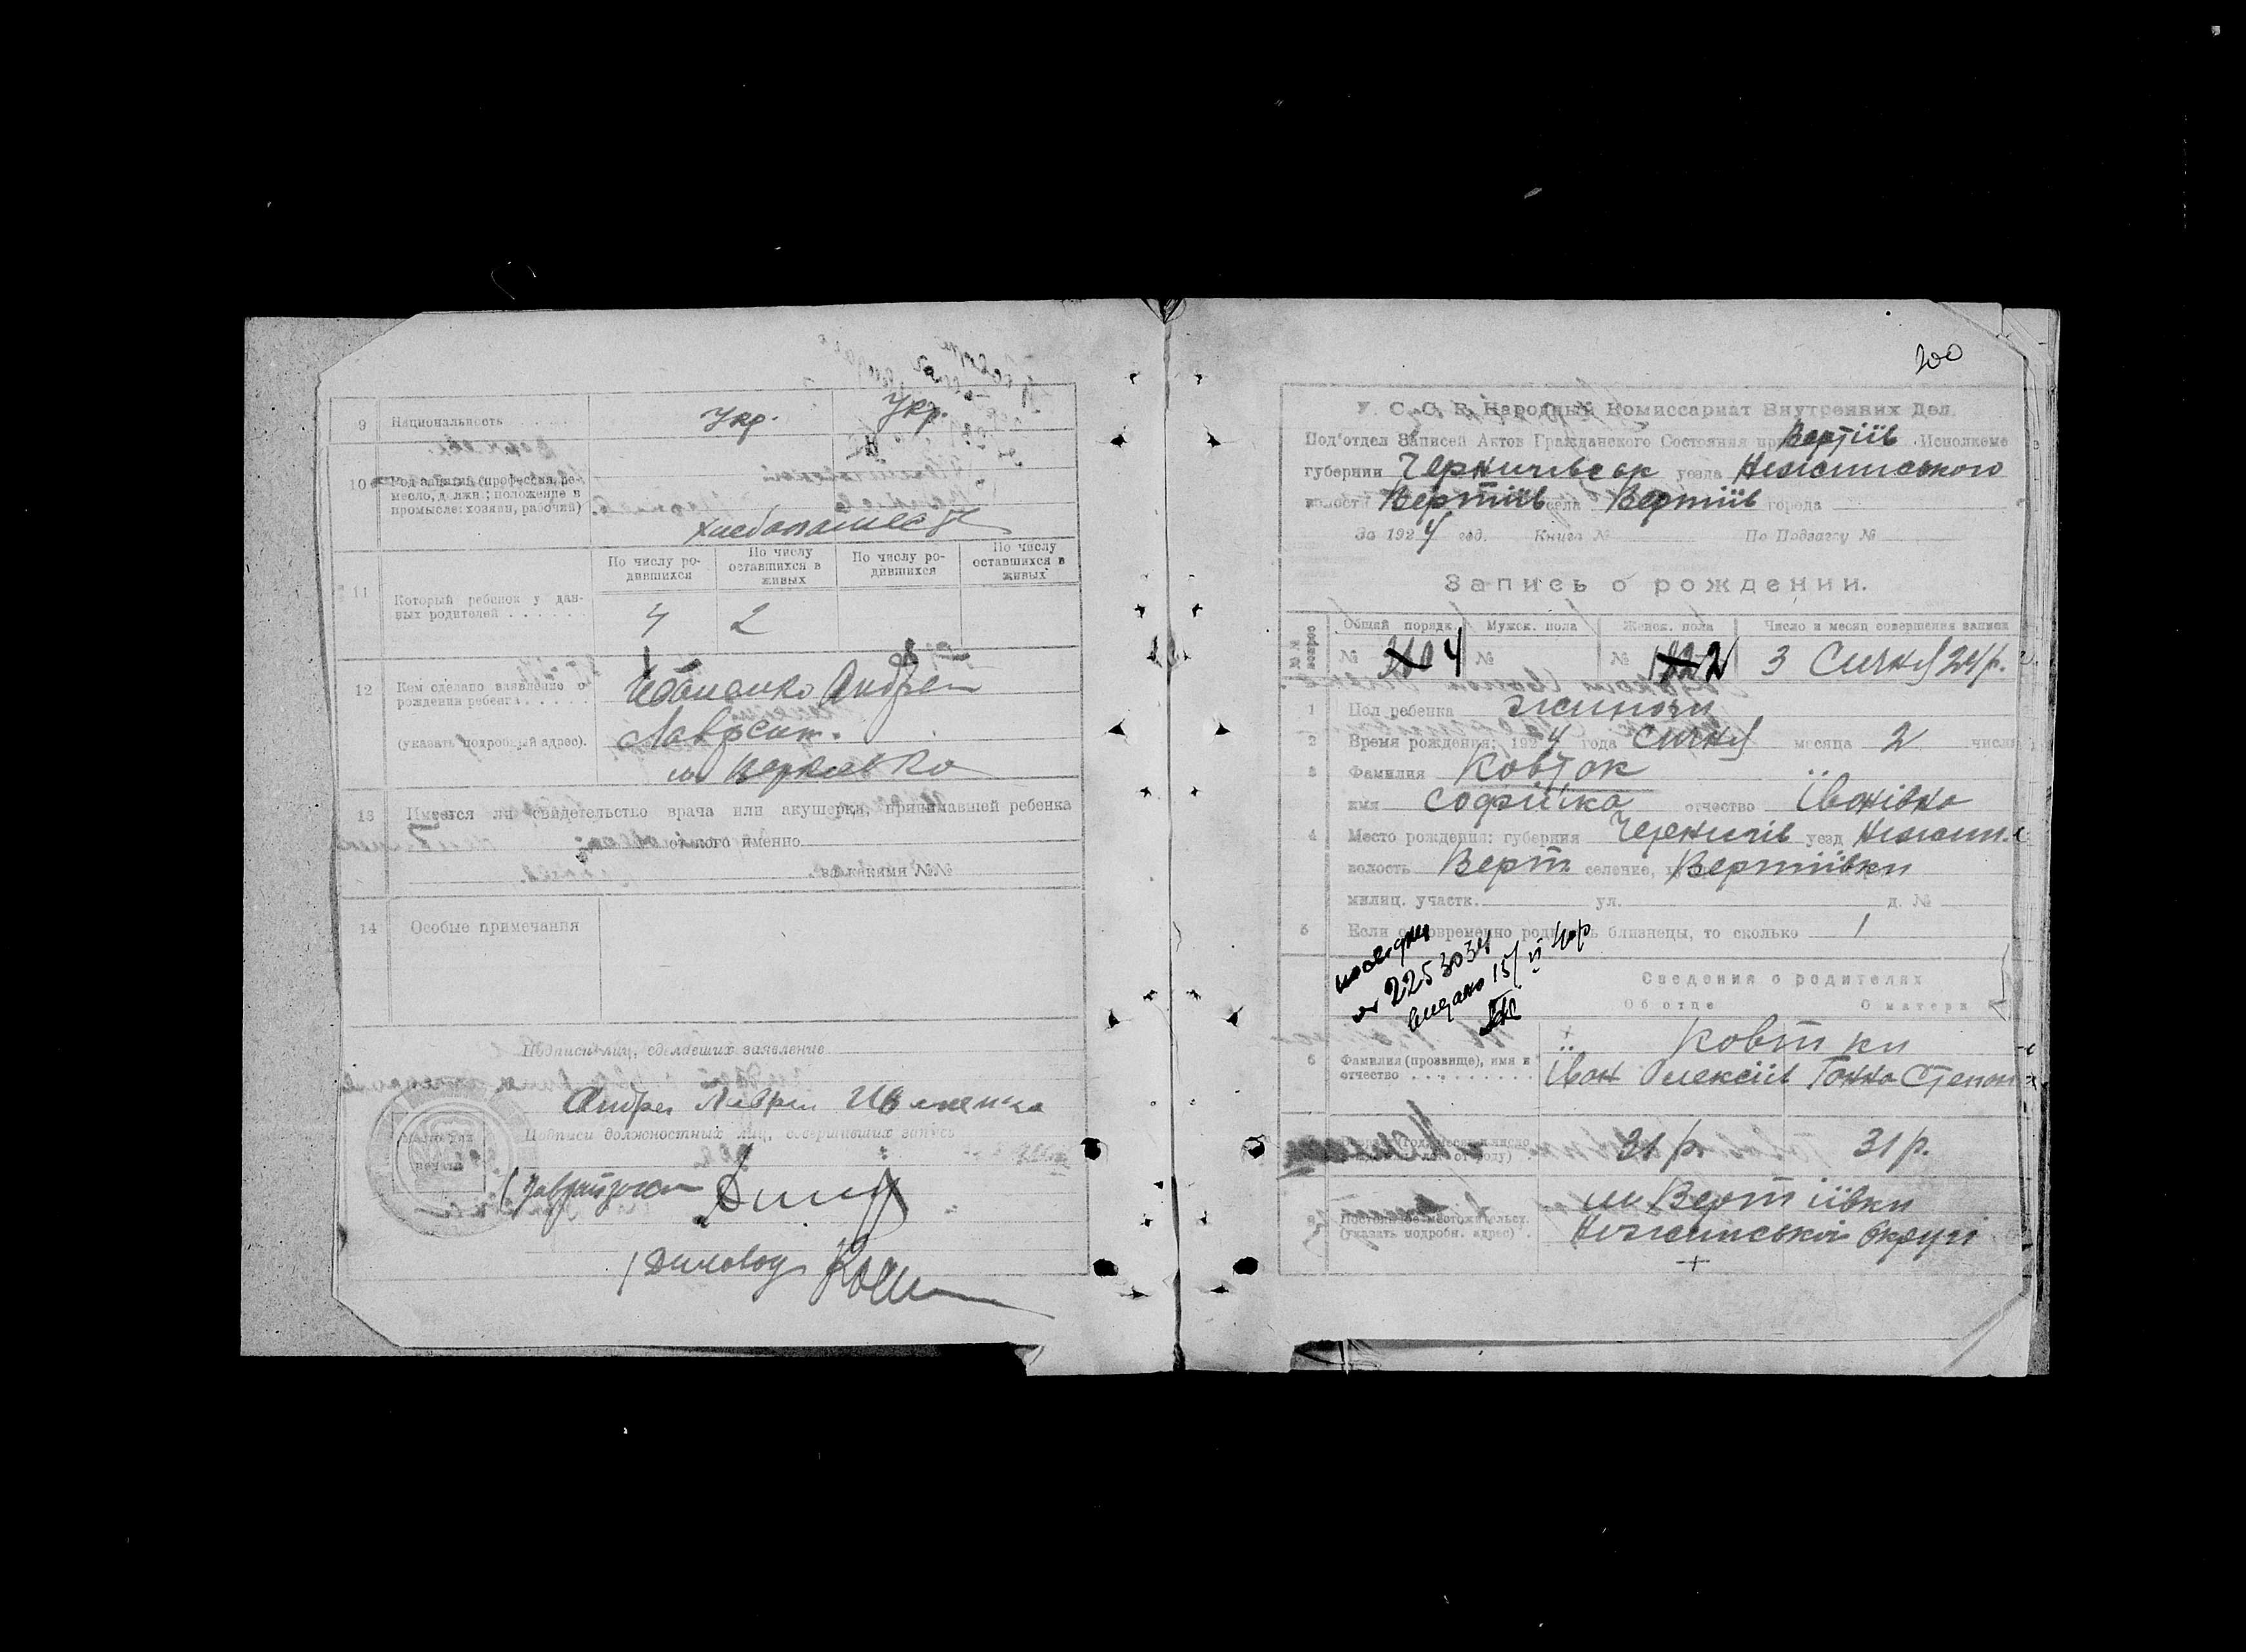 9 Национальность Укр. Укр.
10 Род занятий (профессия, ремесло, должн.; положение в промысле: хозяин, рабочий)
хлебопашество
По числу родившихся По числу оставшихся в живых По числу родившихся По числу оставшихся в живых
11 Который ребенок у данных родителей 4 2
12 Кем сделано заявление о рождении ребенка Иваненко Андрей
(указать подробный адрес). Лаврент.
м. Веркиевка
13 Имеется ли свидетельство врача или акушерки, принимавшей ребенка
от кого именно
за какими №№
14 Особые примечания
Подписи лиц, сделавших заявление
Андрей Лаврен Иваненко
Подписи должностных лиц, совершивших запись
Место для печати
Діловод
200
У. С. С. Р. Народный Комиссариат Внутренних Дел.
Под'отдел Записей Актов Гражданского Состояния при Вертіїв Исполкоме
губернии Чернигівськ уезда Ніжинського
волости Вертіїв села Вертіїв города
За 1924 год. Книга № По Подзагсу №
Запись о рождении.
№№ вопрос Общий порядк. Мужск. пола Женск. пола Число и месяц совершения записи
№ 4 № № 2 3 Січня 24 р.
1 Пол ребенка жіночи
2 Время рождения: 1924 года січня месяца 2 числа
3 Фамилия Ковток
имя Софійка отчество Івонівна
4 Место рождения: губерния Чернигів уезд Ніжин.
волость Верт. селение, Вертіївки
милиц. участк. ул. д. №
5 Если одновременно родились близнецы, то сколько 1
посвідку
№ 2253034
видано 15/
Сведения о родителях
Об отце О матери
Ковтки
6 Фамилия (прозвище), имя и отчество Івон Олексіїв Гонна Степон
31 р. 31 р.
м Вертіївки
8 Постоянное местожительсв. (указать подробн. адрес) Ніжинської Округі